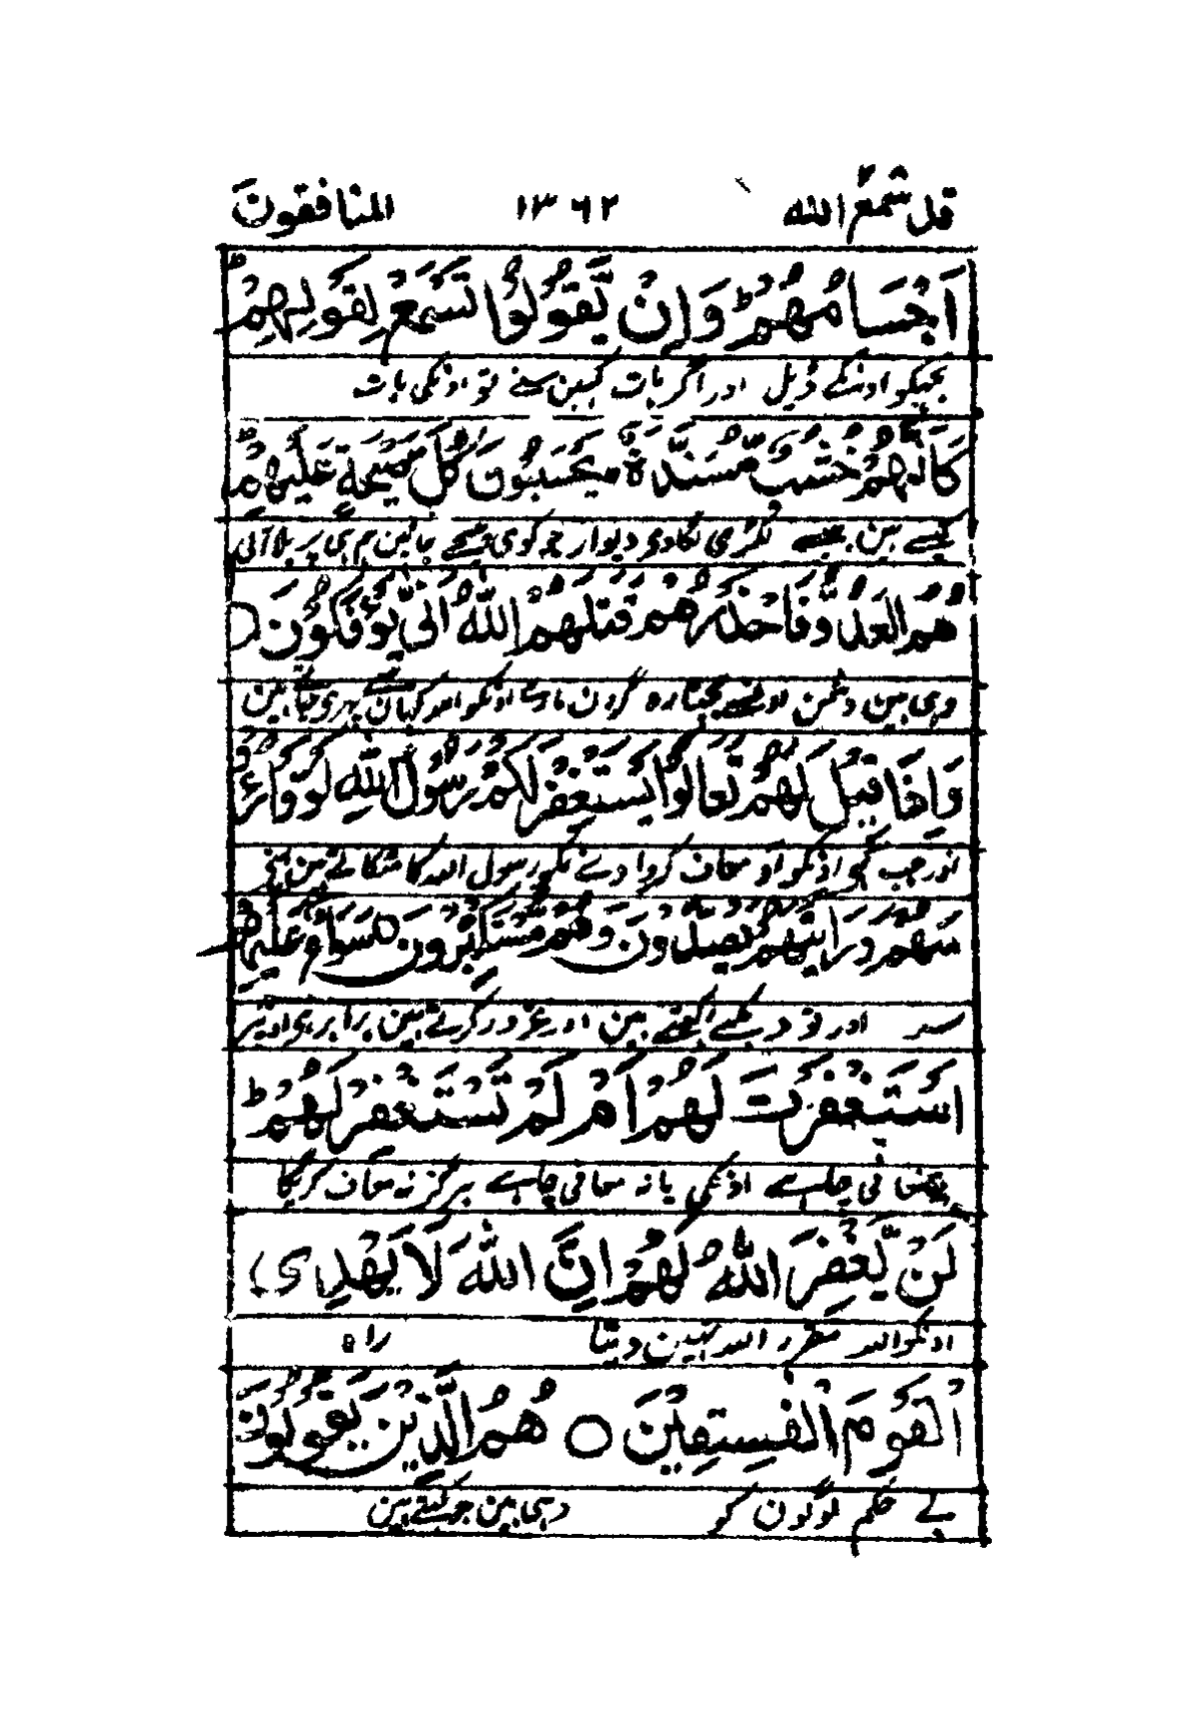 قد سمع الله ١٣٦٢ المنافقون
اَجْسَامُهُمْ ؕ وَاِنْ يَّقُوْلُوْا تَسْمَعْ لِقَوْلِهِمْ ؕ
تجھکو اونکے ڈیل اور اگر بات کہین سنے تو اونکی بات
كَاَنَّهُمْ خُشُبٌ مُّسَنَّدَةٌ ؕ يَحْسَبُوْنَ كُلَّ صَيْحَةٍ عَلَيْهِمْ ؕ
کیسے ہین جیسے لکڑی لگادی دیوار جو کوی چیخے جانین ہم ہی پر بلا آئی
هُمُ الْعَدُوُّ فَاحْذَرْهُمْ ؕ قٰتَلَهُمُ اللّٰهُ اَنّٰى يُؤْفَكُوْنَ ○
وہی ہین دشمن اونسے بچتا رہ گردن مارے اونکو اللہ کہان سے پہرے جاتے ہین
وَاِذَا قِيْلَ لَهُمْ تَعَالَوْا يَسْتَغْفِرْ لَكُمْ رَسُوْلُ اللّٰهِ لَوَّوْا رُءُوْ
اور جب کہی اونکو آو معاف کروا دے تمکو رسول اللہ کا مٹکاتے ہین اپنے
سَهُمْ وَرَاَيْتَهُمْ يَصُدُّوْنَ وَهُمْ مُّسْتَكْبِرُوْنَ ○ سَوَآءٌ عَلَيْهِمْ
سر اور تو دیکھے اٹکتے ہین اور غرور کرتے ہین برابر ہی اونپر
اَسْتَغْفَرْتَ لَهُمْ اَمْ لَمْ تَسْتَغْفِرْ لَهُمْ ؕ
معافی چاہے اونکی یا نہ معافی چاہے ہرگز نہ معاف کریگا
لَنْ يَّغْفِرَ اللّٰهُ لَهُمْ ؕ اِنَّ اللّٰهَ لَا يَهْدِى
اونکو اللہ مقرر اللہ نہین دیتا راہ
الْقَوْمَ الْفٰسِقِيْنَ ○ هُمُ الَّذِيْنَ يَقُوْلُوْنَ
بے حکم لوگون کو وہی ہین جو کہتے ہین